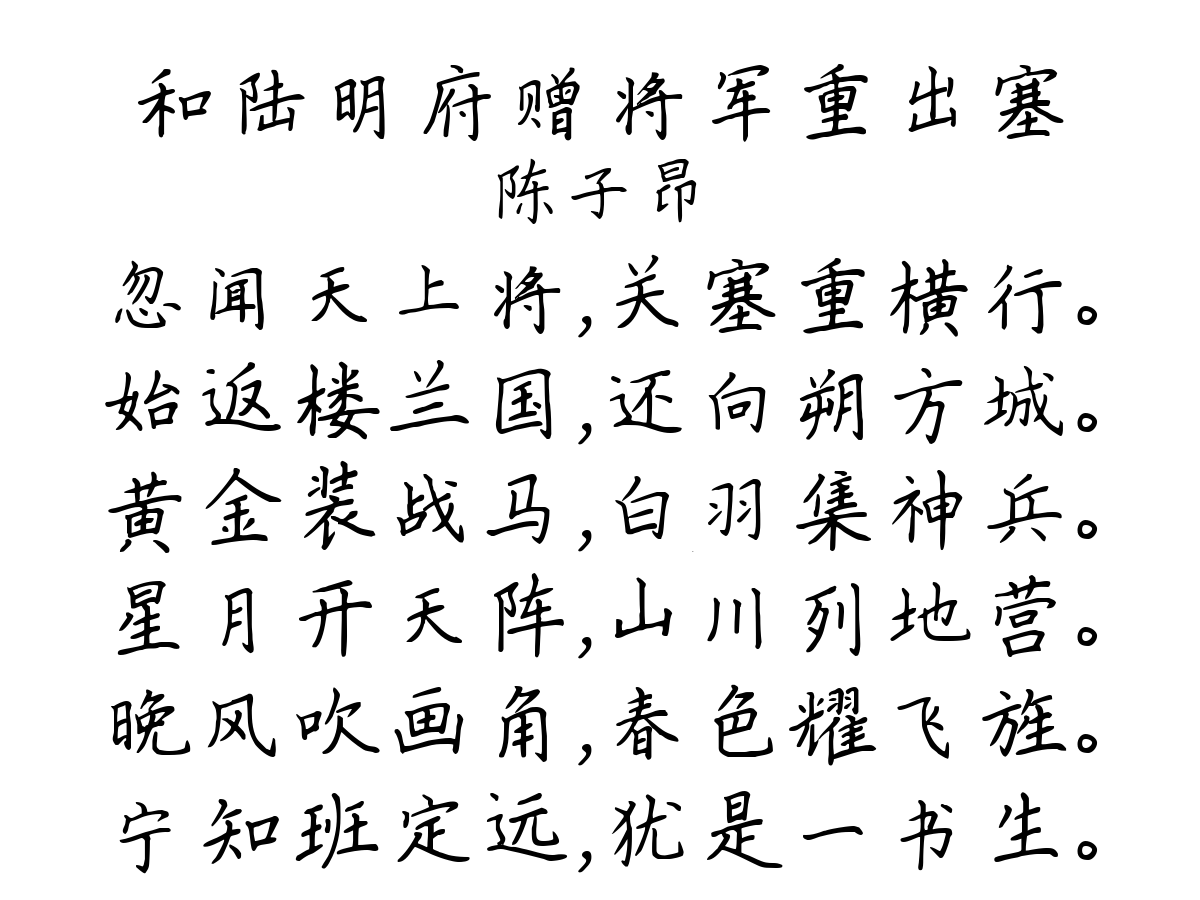 和陆明府赠将军重出塞
陈子昂
忽闻天上将,关塞重横行。
始返楼兰国,还向朔方城。
黄金装战马,白羽集神兵。
星月开天阵,山川列地营。
晚风吹画角,春色耀飞旌。
宁知班定远,犹是一书生。